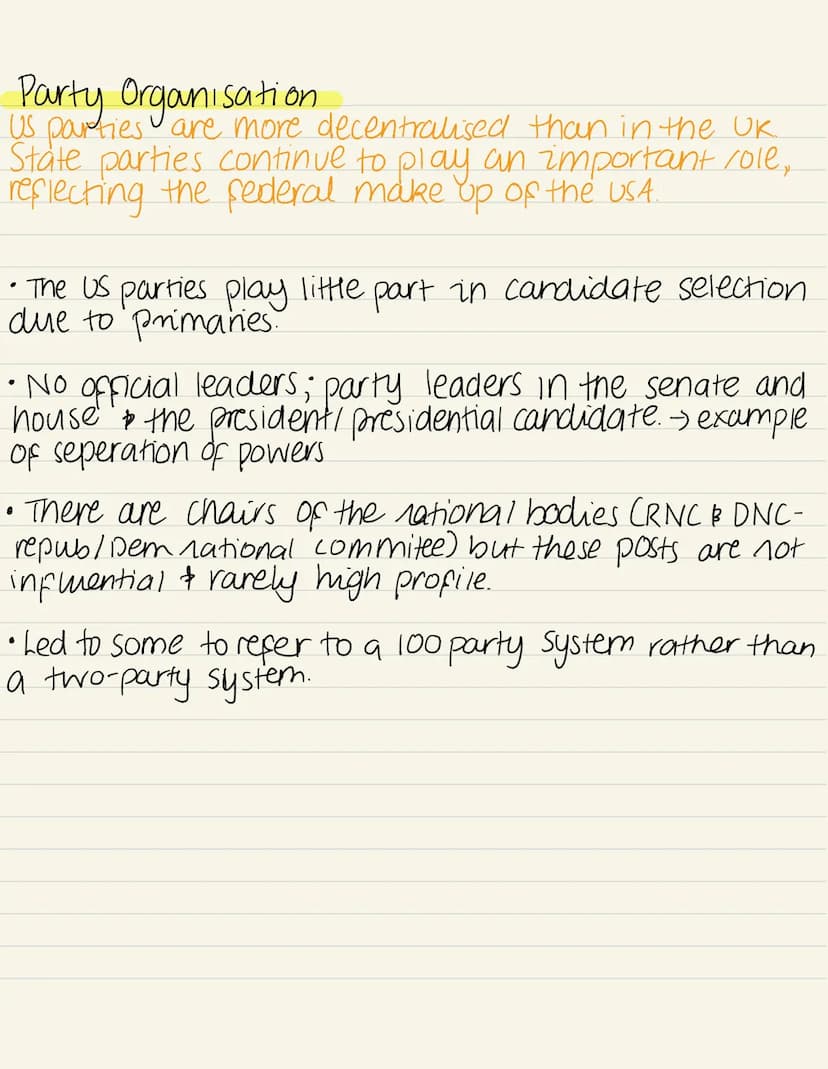 Party Organisation
US parties are more decentralised than in the UK.
State parties continue to play an important role,
reflecting the federal make up of the USA.
• The US parties play little part in candidate selection
due to primaries.
• No official leaders; party leaders in the senate and
house & the president/presidential candidate. → example
of seperation of powers
• There are chairs of the national bodies (RNC & DNC-
repub/Dem national commitee) but these posts are not
influential & rarely high profile.
• Led to some to refer to a 100 party system rather than
a two-party system.